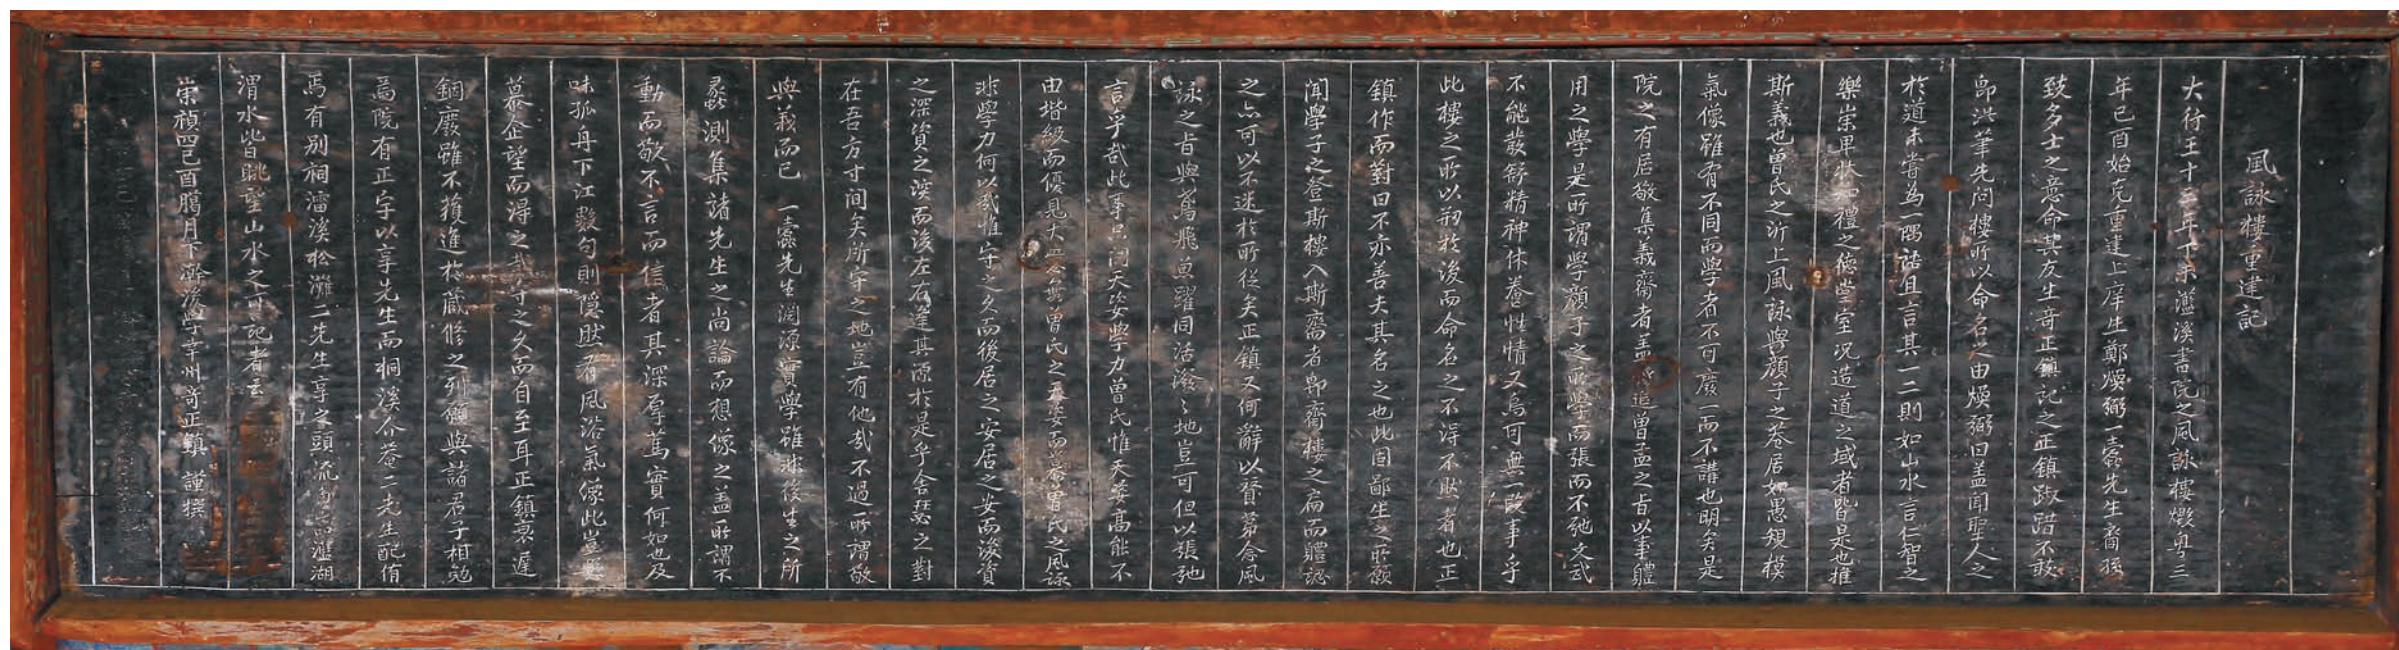 風詠樓重建記
大行王十三年丁未灆溪書院之風詠樓燬粤三
年己酉始克重建上庠生鄭煥弼一蠹先生裔孫
致多士之意命其友生奇正鎭記之正鎭踧踖不敢
卽洪筆先問樓所以命名之由煥弼曰盖聞聖人之
於道未嘗爲一隅語且言其一二則如山水言仁智之
樂崇卑狀知禮之德堂室况造道之域者皆是也推
斯義也曾氏之沂上風詠與顔子之巷居如愚䫉模
氣像雖有不同而學者不可廢一而不講也明矣是
院之有居敬集義齋者盖追曾孟之旨以事體
用之學是所謂學顔子之所學而張而不弛文武
不能散舒精神休養性情又烏可無一段事乎
此樓之所以刱於後而命名之不得不然者也正
鎭作而對曰不亦善夫其名之也此固鄙生之所願
聞學子之登斯樓入斯齋者卽齋樓之扁而體認
之亦可以不迷於所從矣正鎭又何辭以贅第念風
詠之旨與鳶飛魚躍同活潑〻地豈可但以張弛
言乎哉此事只問天姿學力曾氏惟天姿高能不
由堦級而優見大意無曾氏之天姿而當曾氏之風詠
非學力何以哉惟守之久而後居之安居之安而後資
之深資之深而後左右逢其源於是乎舍瑟之對
在吾方寸間矣所守之地豈有他哉不過所謂敬
與義而已 一蠹先生淵源實學雖非後生之所
蠡測集諸先生之尚論而想像之盖所謂不
動而敬不言而信者其深厚篤實何如也及
味孤舟下江數句則隱然有風浴氣像此豈
慕企望而得之哉守之久而自至耳正鎭衰遲
錮廢雖不獲進於藏修之列願與諸君子相勉
焉院有正宇以享先生而桐溪介菴二先生配侑
焉有別祠㵢溪松灘二先生享之頭流 灆湖
渭水皆眺望山水之可記者云
崇禎四己酉臈月下澣後學幸州奇正鎭 謹撰